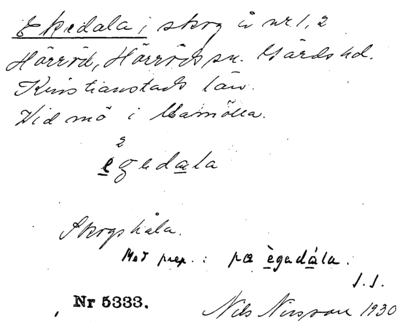 Ekedala, skog å nr 1, 2
Hörröd, Hörröds sn. Gärds hd.
Kristianstads län.
Vid mö i
ègedala
2
Skogshåla.
Med prep.: pæ ègadála.
S.S.
Nr 5333.
Nils Nilsson 1930